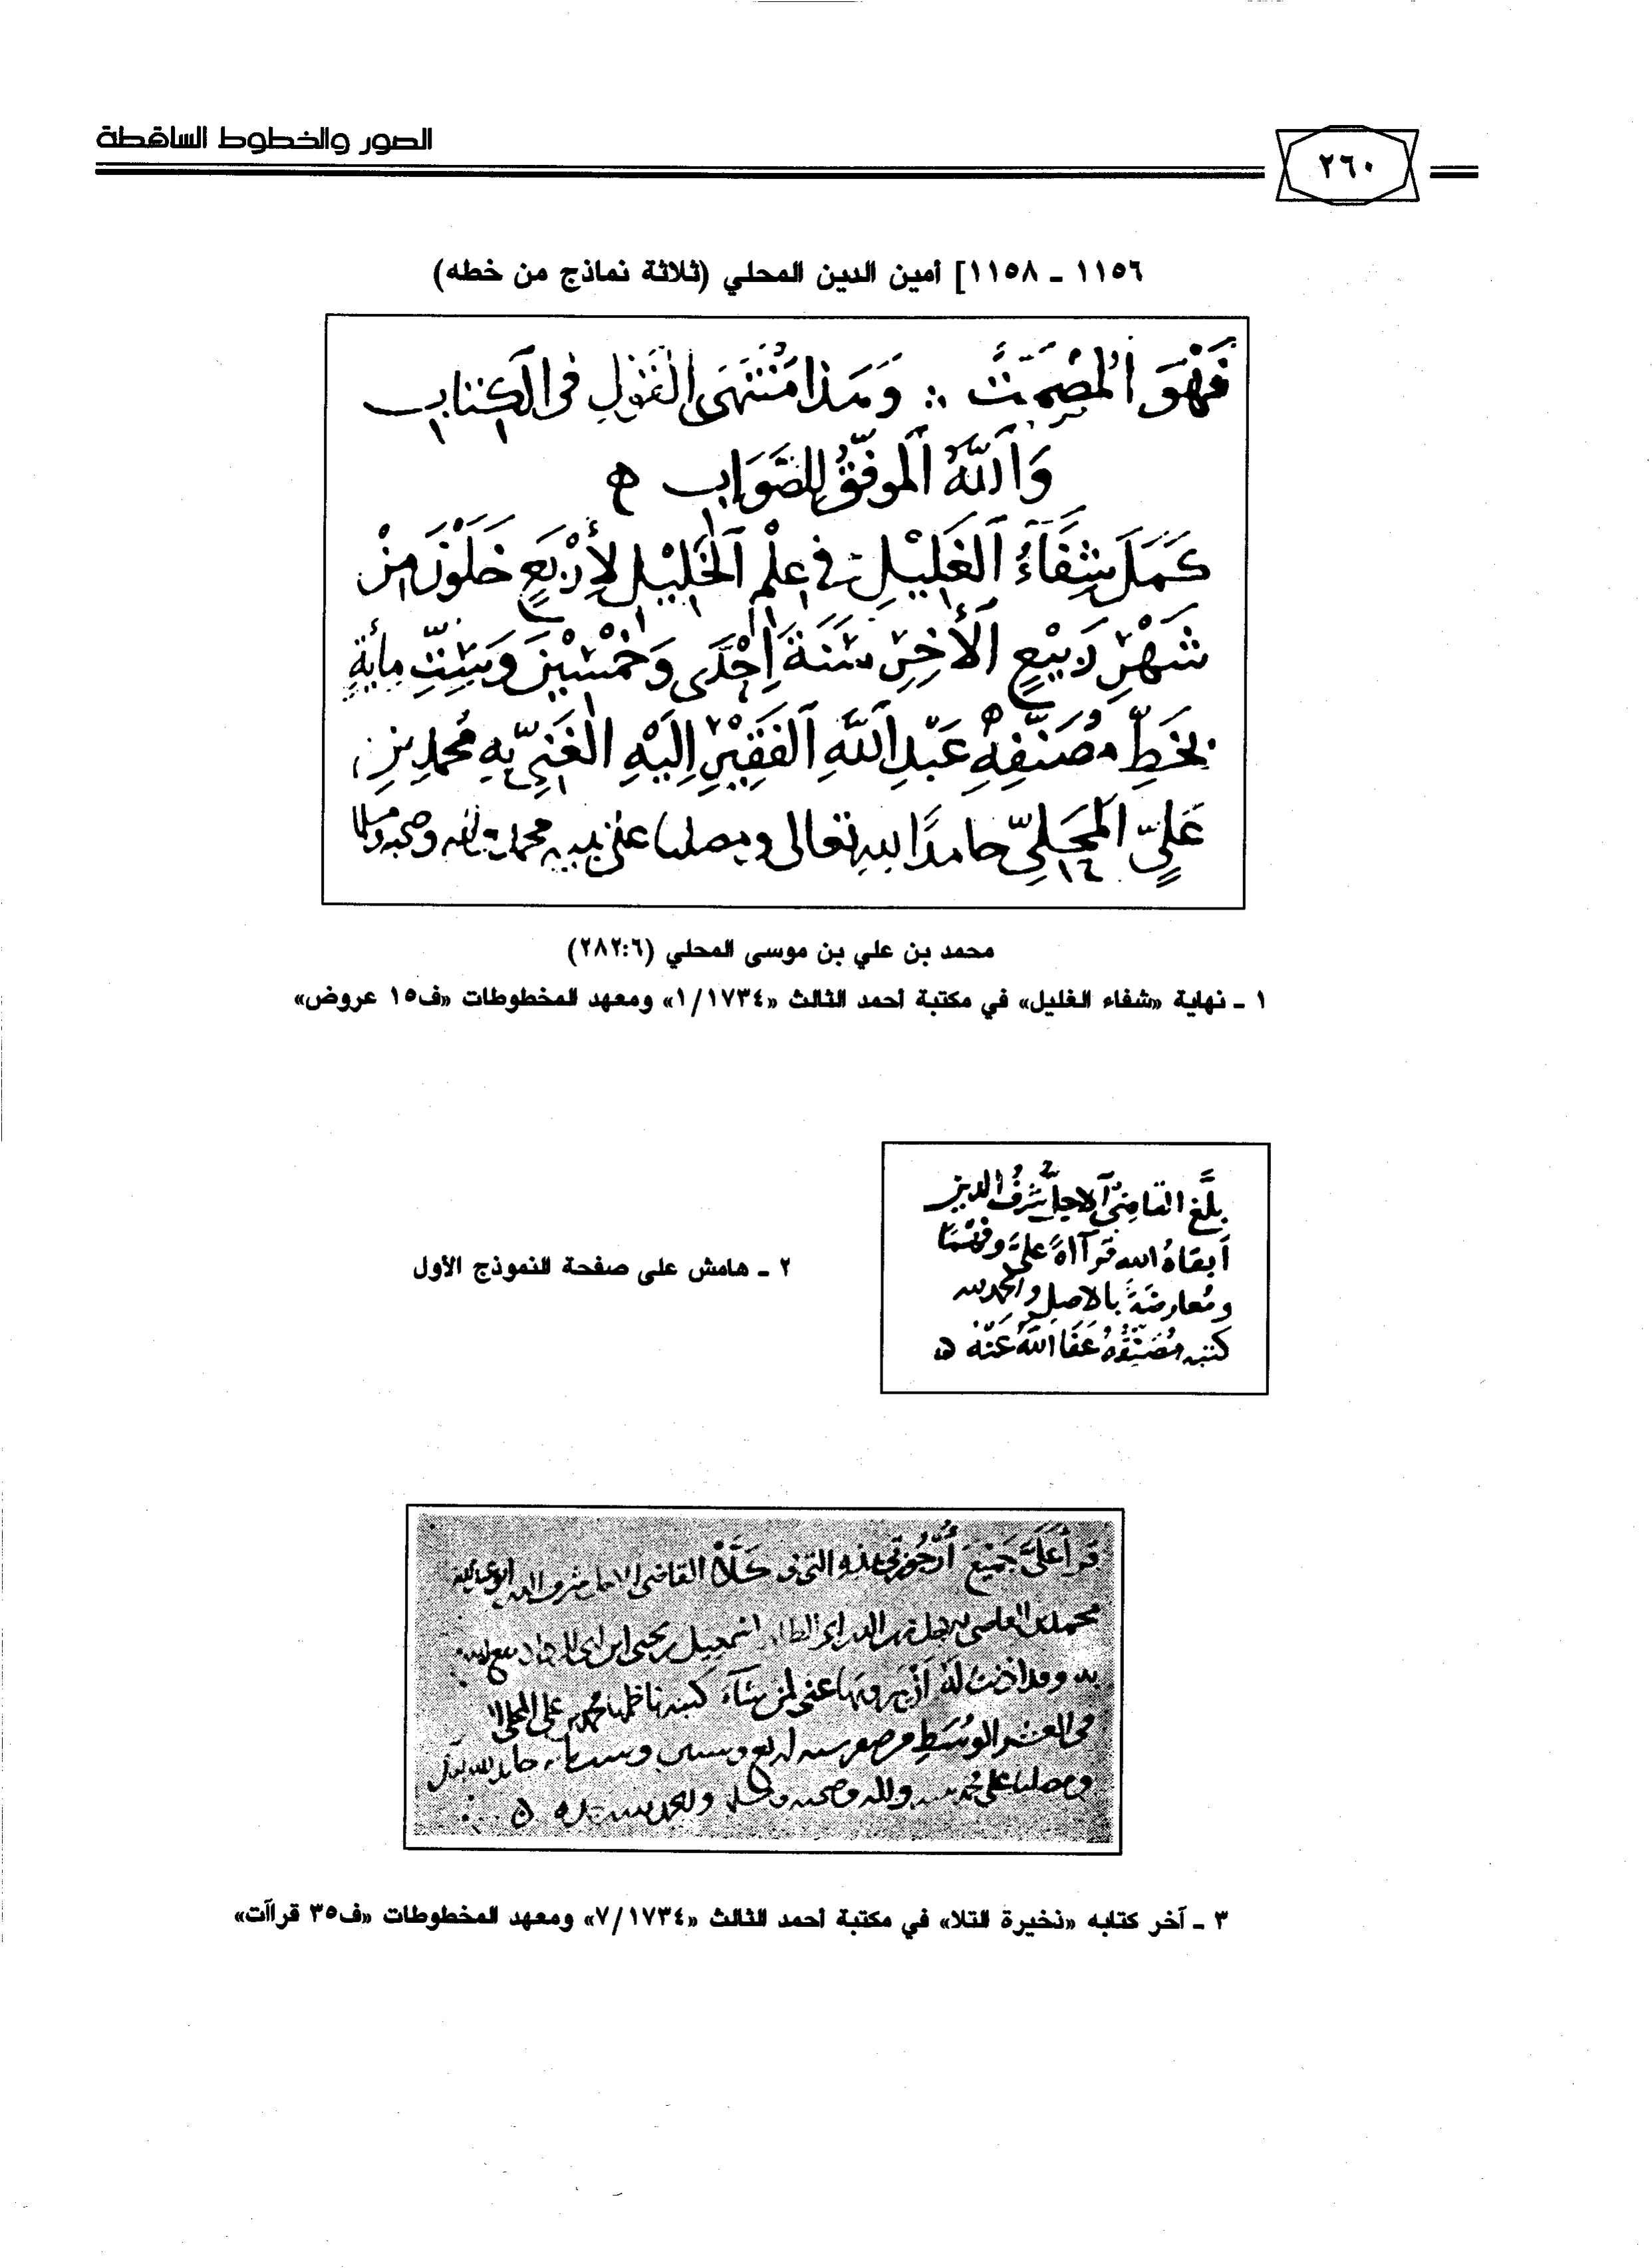 الصور والخطوط الساقطة
٢٦٠
١١٥٦ - ١١٥٨] أمين الدين المحلي (ثلاثة نماذج من خطه)
فَهْوَ المُصْمَتُ ∴ وَهَذا مُنْتَهَى القَوْلِ في الكتاب
وَاللَّهُ المُوَفِّقُ لِلصَّوَابِ ه
كَمَلَ شِفَآءُ الغَلِيْلِ في عِلْمِ الخَلِيْلِ لِأَرْبَعٍ خَلَوْنَ مِنْ
شَهْرِ رَبِيْعٍ الأَخِرِ سَنَةَ إِحْدَى وَخَمْسِيْنَ وَسِتِّ مِائَةٍ
بخَطِّ مُصَنِّفِهِ عَبْدِ اللَّهِ الفَقِيْرِ إِلَيْهِ الغَنِيِّ بِهِ مُحَمَّدِ بنِ
عَلِيٍّ المَحَلِّيِّ حامدًا لله تعالى ومصليا على نبيه محمد وآله وصحبه ومسلما
محمد بن علي بن موسى المحلي (٢٨٢:٦)
١ - نهاية «شفاء الغليل» في مكتبة أحمد الثالث «١/١٧٣٤» ومعهد المخطوطات «ف١٥ عروض»
بلَّغ القاضي الأجلُّ شرفُ الدين
أبقاهُ الله قرآاةً عليَّ وفهْمًا
ومُعارضةً بالاصل والحمد لله
كتبه مُصَنِّفُهُ عَفَا اللَّهُ عَنْهُ ه
٢ - هامش على صفحة النموذج الأول
قرأ عَلَيَّ جَمِيْعَ أُرْجُوزتي هذه التي القاضي الاجل شرف الدين ابو عبد الله
محمد بن اسمعيل بن يحيى ابن ابي
لله وقد اذنت لَهُ أَنْ يَرويَها عني لمن شآءَ كتبه ناظمها محمد بن علي المحلي
في العشر الوُسَطِ من صفر سنة اربع وستمائه حامدا لله تعالى
ومصليا على محمد واله وصحبه والحمد لله
٣ - آخر كتابه «ذخيرة التلا» في مكتبة أحمد الثالث «٧/١٧٣٤» ومعهد المخطوطات «ف٣٥ قراآت»